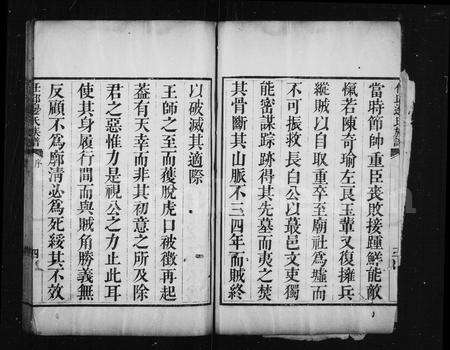 當時節帥重臣喪敗接踵鮮能敵
愾若陳奇瑜左良玉輩又復擁兵
縱賊以自取重卒至廟社爲墟而
不可振救長白公以蕞邑文吏獨
能密謀踪跡得其先墓而夷之焚
其骨斷其山脈不三四年而賊終
以破滅其適際
王師之至而獲脫虎口被徵再起
蓋有天幸而非其初意之所及除
君之惡惟力是視公之力止此耳
使其身履行間而與賊角勝義無
反顧不爲廓清必爲死綏其不效
任邱邊氏族譜 序 四